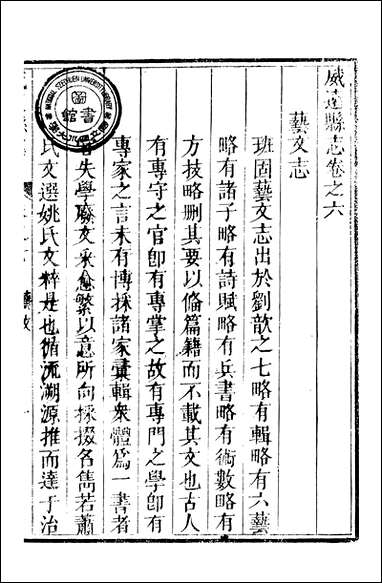 威遠縣志卷之六
藝文志
班固藝文志出於劉歆之七略有輯略有六藝
略有諸子略有詩賦略有兵書略有術數略有
方技略删其要以俻篇籍而不載其文也古人
有專守之官卽有專掌之故有專門之學卽有
專家之言未有博採諸家彙輯衆體爲一書者
失學廢文采愈繁以意所向採掇名雋若蕭
氏文選姚氏文粹是也循流溯源推而達于治
NATIONAL SZECHUEN UNIVERSITY LIBRARY
書館